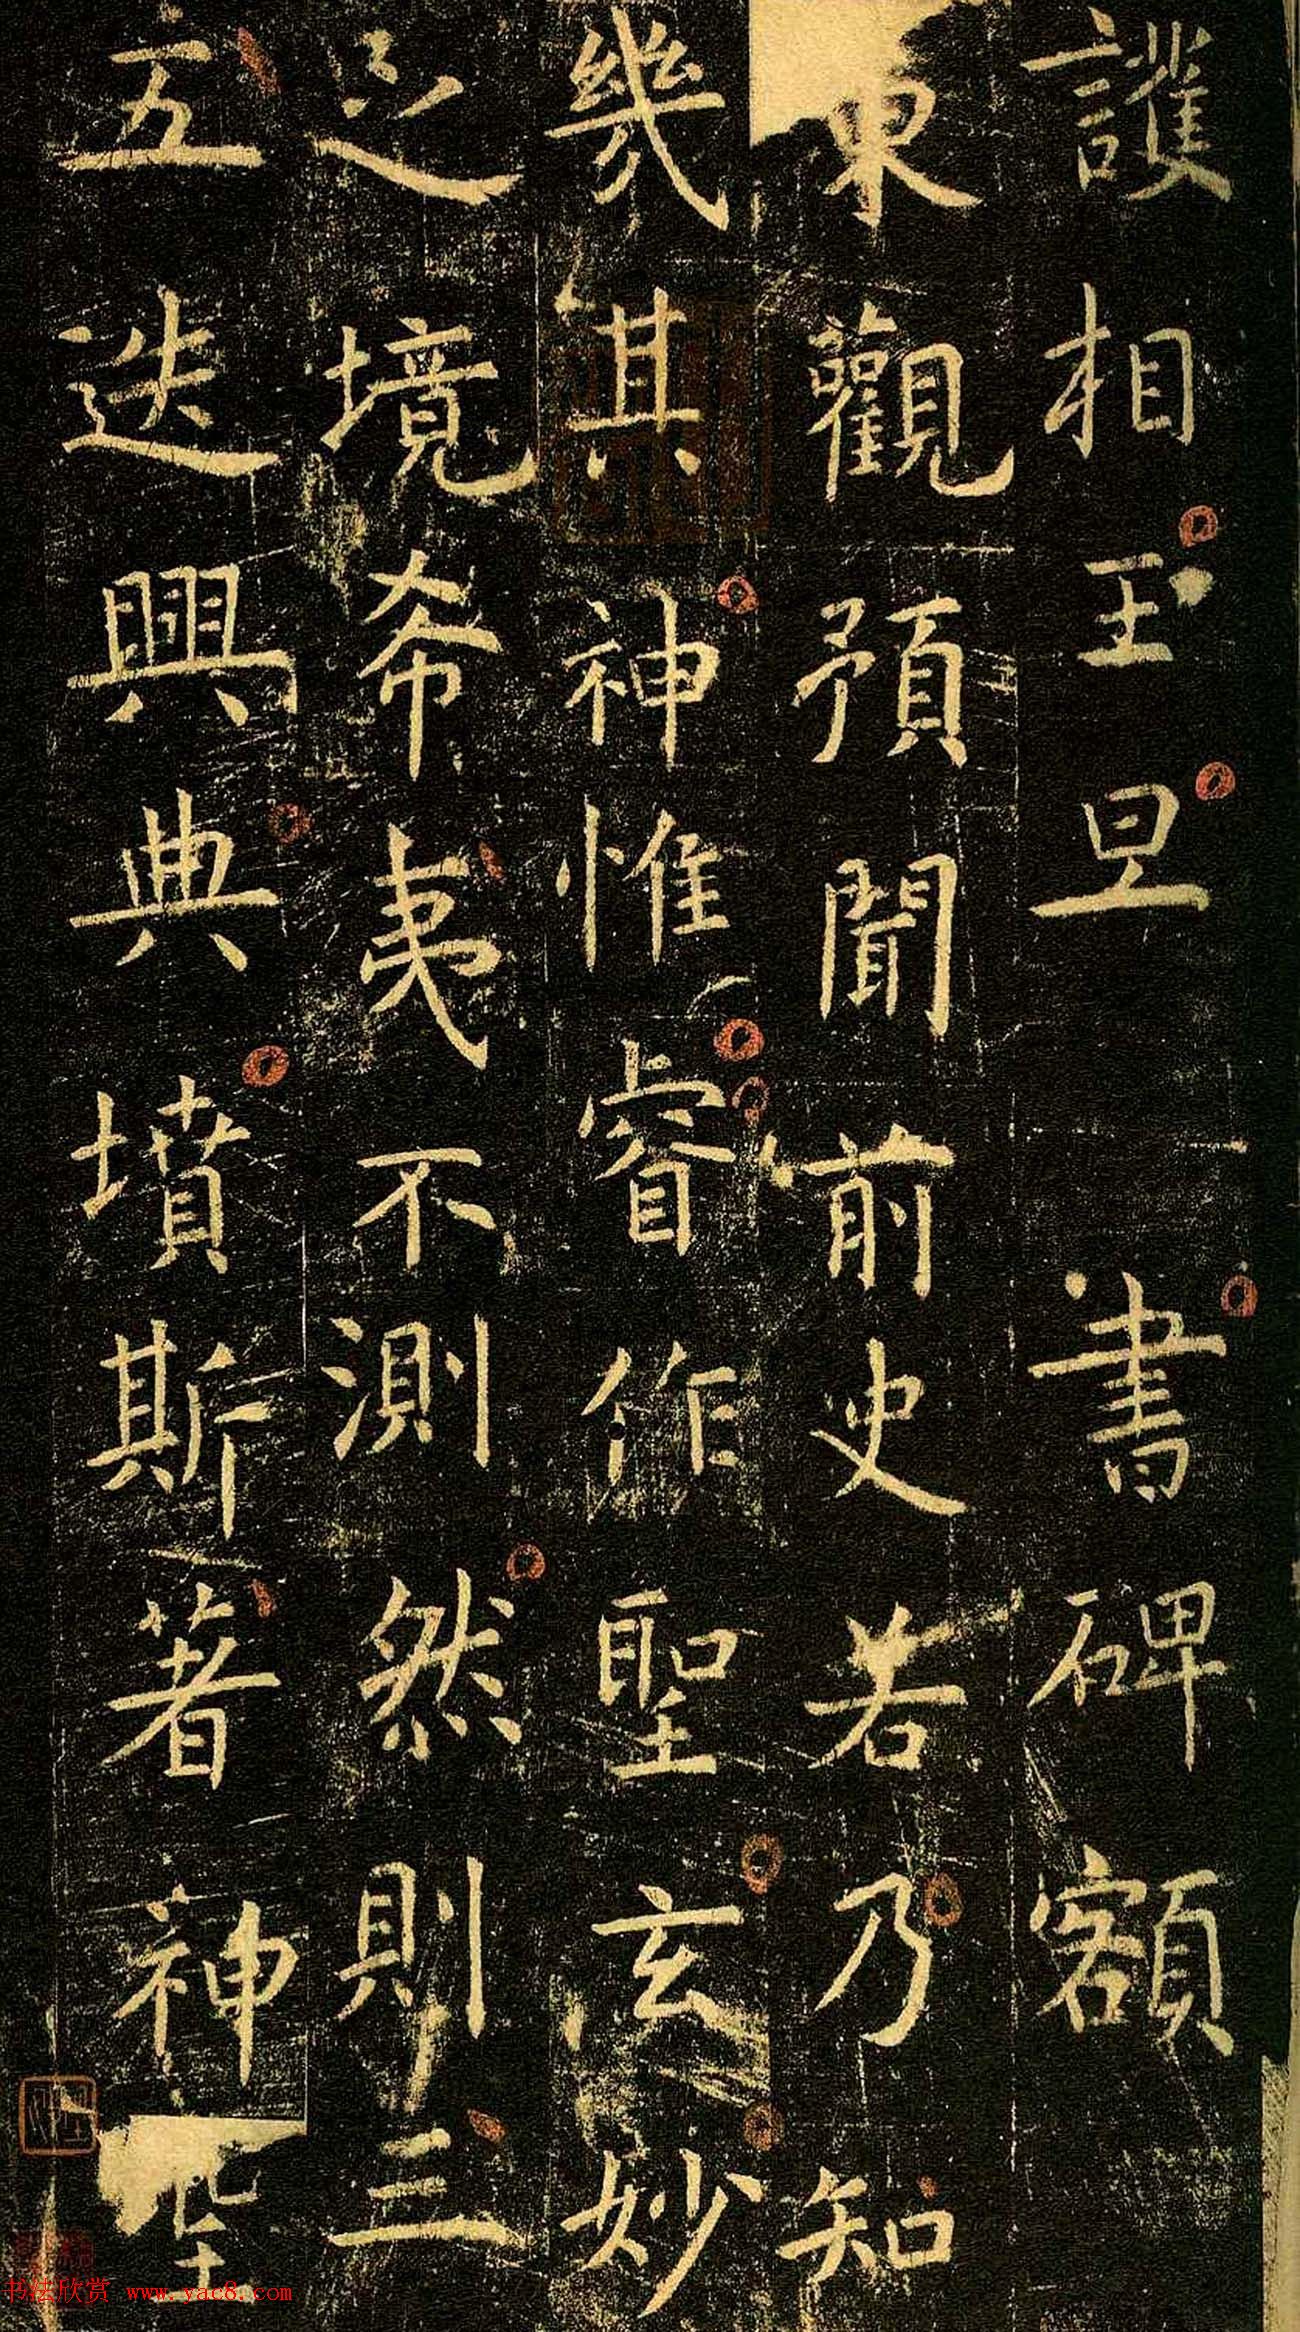 護相王旦書碑額
東觀預聞前史若乃知
幾其神惟睿作聖玄妙
之境希夷不測然則三
五迭興典墳斯著神
书法欣赏 www.yac8.com